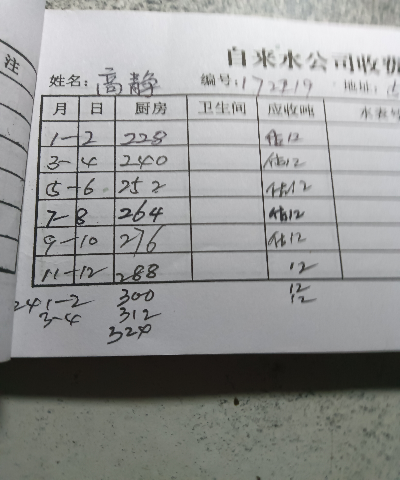 注
自来水公司收
姓名:高静 编号:172219 地址:
月 日 厨房 卫生间 应收吨 水表
1-2 228 估12
3-4 240 估12
5-6 252 估12
7-8 264 估12
9-10 276 估12
11-12 288 12
24 1-2 300 12
3-4 312 12
324